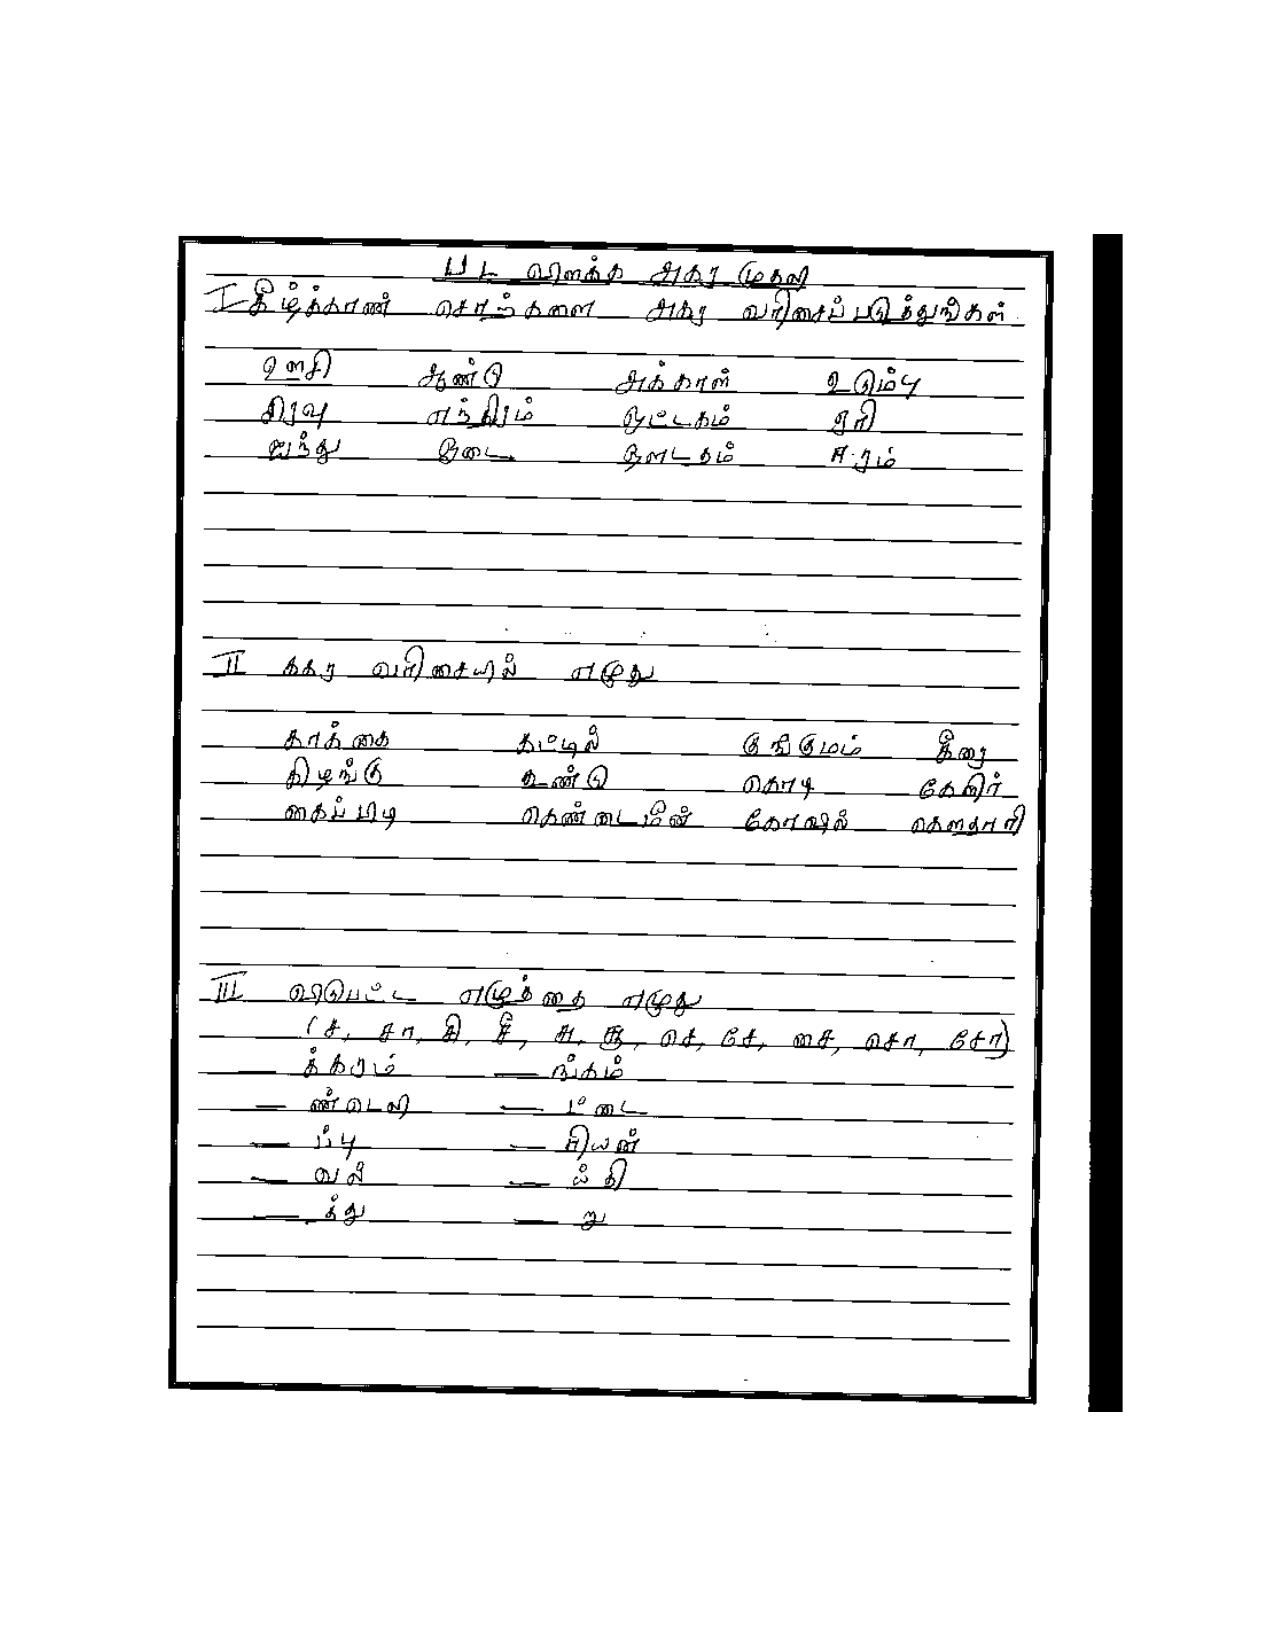 பட விளக்க அகர முதலி
I கீழ்க்காண் சொற்களை அகர வரிசைப் படுத்துங்கள்.
ஊசி ஆண்டு அக்காள் உடும்பு
இரவு எந்திரம் ஒட்டகம் ஏரி
ஐந்து ஓடை ஔடகம் ஈரம்
II ககர வரிசையில் எழுது
காக்கை கட்டில் குங்குமம் கீரை
கிழங்கு கூண்டு கொடி கேளிர்
கைப்பிடி கெண்டைமீன் கோவில் கௌதாரி
III விடுபட்ட எழுத்தை எழுது
(ச, சா, சி, சீ, சு, சூ, செ, சே, சை, சொ, சோ)
— க்கரம் — ங்கம்
— ண்டெலி — ட்டை
— ப்பு — ரியன்
— வல் — ய்தி
— த்து — று